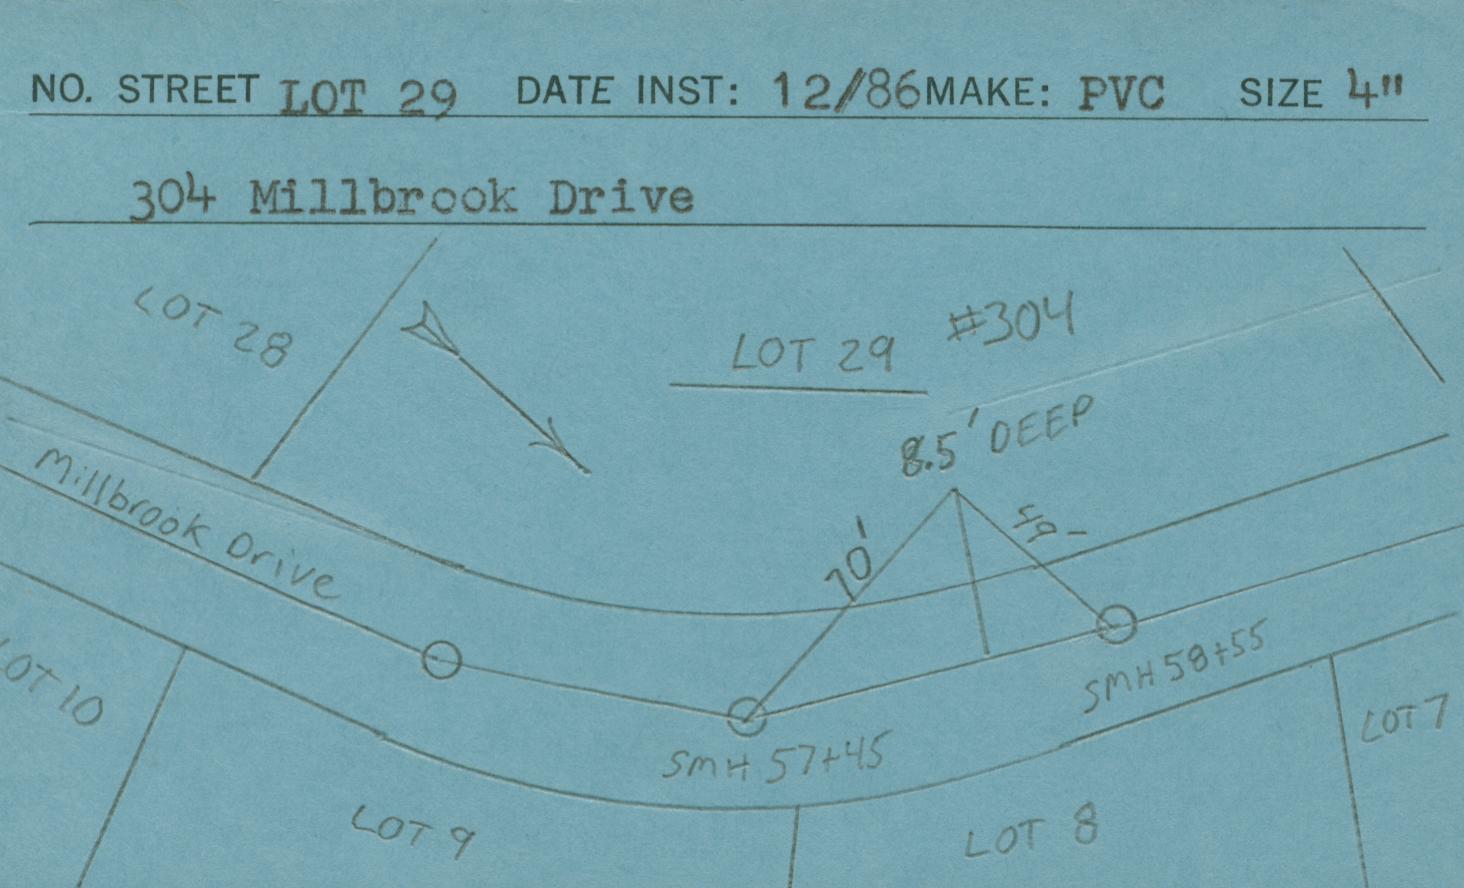 NO. STREET LOT 29 DATE INST: 12/86 MAKE: PVC SIZE 4"
304 Millbrook Drive
LOT 28
LOT 29 #304
8.5' DEEP
Millbrook Drive
70'
SMH 58+55
LOT 10
SMH 57+45
LOT 7
LOT 9
LOT 8